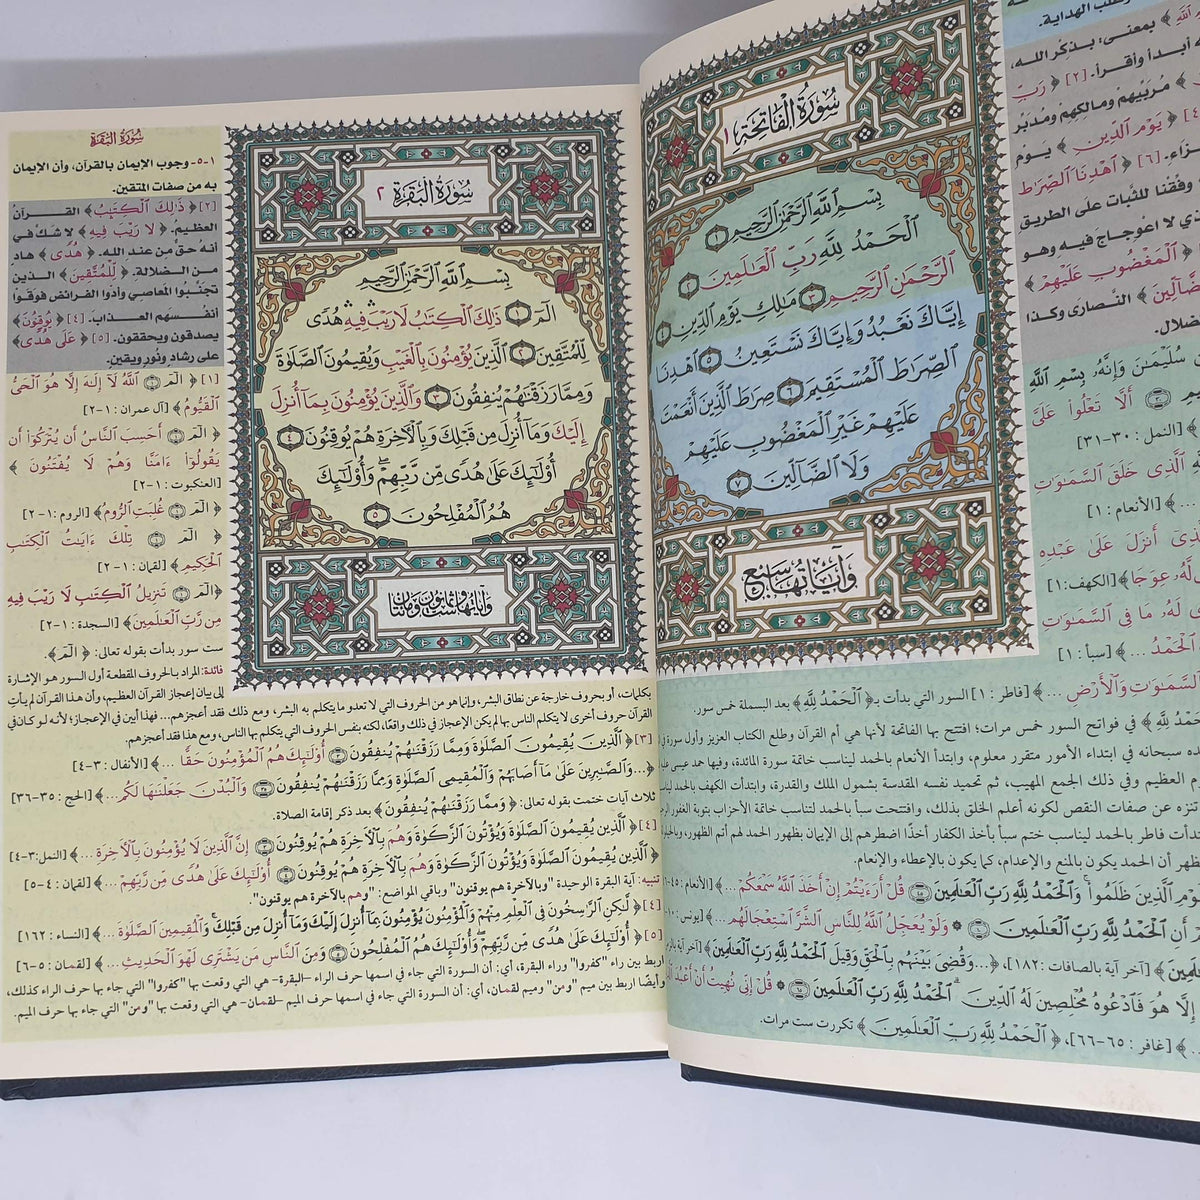 سُورَةُ الْفَاتِحَةِ ١
بِسْمِ اللَّهِ الرَّحْمَٰنِ الرَّحِيمِ ١
الْحَمْدُ لِلَّهِ رَبِّ الْعَالَمِينَ ٢
الرَّحْمَٰنِ الرَّحِيمِ ٣ مَالِكِ يَوْمِ الدِّينِ ٤
إِيَّاكَ نَعْبُدُ وَإِيَّاكَ نَسْتَعِينُ ٥ اهْدِنَا
الصِّرَاطَ الْمُسْتَقِيمَ ٦ صِرَاطَ الَّذِينَ أَنْعَمْتَ
عَلَيْهِمْ غَيْرِ الْمَغْضُوبِ عَلَيْهِمْ
وَلَا الضَّالِّينَ ٧
وَآيَاتُهَا سَبْعٌ
طلب الهداية.
بمعنى: بذكر الله،
أبدأ وأقرأ. [٢] ﴿ رَبِّ
﴾ مربيهم ومالكهم ومدبر
﴿ يَوْمِ الدِّينِ ﴾ يوم
[٦] ﴿ اهْدِنَا الصِّرَاطَ
وفقنا للثبات على الطريق
لا اعوجاج فيه وهو
﴿ الْمَغْضُوبِ عَلَيْهِمْ ﴾
النصارى وكذا
سُلَيْمَانَ وَإِنَّهُ بِسْمِ اللَّهِ
أَلَّا تَعْلُوا عَلَيَّ
[النمل : ٣٠-٣١]
الَّذِي خَلَقَ السَّمَاوَاتِ
[الأنعام : ١]
أَنْزَلَ عَلَىٰ عَبْدِهِ
لَهُ عِوَجَا ﴾ [الكهف: ١]
لَهُ مَا فِي السَّمَاوَاتِ
الْحَمْدُ ... ﴾ [سبأ : ١]
السَّمَاوَاتِ وَالْأَرْضِ ... ﴾ [فاطر : ١] السور التي بدأت بـ﴿ الْحَمْدُ لِلَّهِ ﴾ بعد البسملة خمس سور.
﴾ في فواتح السور خمس مرات؛ افتتح بها الفاتحة لأنها هي أم القرآن وطلع الكتاب العزيز وأول سورة في
سبحانه في ابتداء الأمور متقرر معلوم، وابتدأ الأنعام بالحمد ليناسب خاتمة سورة المائدة، وفيها حمد عيسى
العظيم وفي ذلك الجمع المهيب، ثم تحميد نفسه المقدسة بشمول الملك والقدرة، وابتدأت الكهف بالحمد
تنزه عن صفات النقص لكونه أعلم الخلق بذلك، وافتتحت سبأ بالحمد لتناسب خاتمة الأحزاب بتوبة الغفور
فاطر بالحمد ليناسب ختم سبأ بأخذ الكفار أخذًا اضطرهم إلى الإيمان بظهور الحمد لهم أتم الظهور،
أن الحمد يكون بالمنع والإعدام، كما يكون بالإعطاء والإنعام.
الَّذِينَ ظَلَمُوا وَالْحَمْدُ لِلَّهِ رَبِّ الْعَالَمِينَ ٤٥ قُلْ أَرَأَيْتُمْ إِنْ أَخَذَ اللَّهُ سَمْعَكُمْ ... ﴾ [الأنعام : ٤٥-
أَنِ الْحَمْدُ لِلَّهِ رَبِّ الْعَالَمِينَ ١٠ وَلَوْ يُعَجِّلُ اللَّهُ لِلنَّاسِ الشَّرَّ اسْتِعْجَالَهُمْ ... ﴾ [يونس : ١٠-
[آخر آية بالصافات : ١٨٢]، ﴿... وَقُضِيَ بَيْنَهُمْ بِالْحَقِّ وَقِيلَ الْحَمْدُ لِلَّهِ رَبِّ الْعَالَمِينَ ﴾ [آخر آية
إِلَّا هُوَ فَادْعُوهُ مُخْلِصِينَ لَهُ الدِّينَ الْحَمْدُ لِلَّهِ رَبِّ الْعَالَمِينَ ٦٥ قُلْ إِنِّي نُهِيتُ أَنْ أَعْبُدَ
﴾ [غافر : ٦٥-٦٦]، ﴿ الْحَمْدُ لِلَّهِ رَبِّ الْعَالَمِينَ ﴾ تكررت ست مرات.
سُورَةُ الْبَقَرَةِ ٢
بِسْمِ اللَّهِ الرَّحْمَٰنِ الرَّحِيمِ
الم ١ ذَٰلِكَ الْكِتَابُ لَا رَيْبَ فِيهِ هُدًى
لِلْمُتَّقِينَ ٢ الَّذِينَ يُؤْمِنُونَ بِالْغَيْبِ وَيُقِيمُونَ الصَّلَاةَ
وَمِمَّا رَزَقْنَاهُمْ يُنْفِقُونَ ٣ وَالَّذِينَ يُؤْمِنُونَ بِمَا أُنْزِلَ
إِلَيْكَ وَمَا أُنْزِلَ مِنْ قَبْلِكَ وَبِالْآخِرَةِ هُمْ يُوقِنُونَ ٤
أُولَٰئِكَ عَلَىٰ هُدًى مِنْ رَبِّهِمْ وَأُولَٰئِكَ
هُمُ الْمُفْلِحُونَ ٥
وَآيَاتُهَا سِتٌّ وَثَمَانُونَ وَمِائَتَانِ
سُورَةُ الْبَقَرَةِ
١-٥- وجوب الإيمان بالقرآن، وأن الإيمان
به من صفات المتقين.
[٢] ﴿ ذَٰلِكَ الْكِتَابُ ﴾ القرآن
العظيم. ﴿ لَا رَيْبَ فِيهِ ﴾ لا شك في
أنه حق من عند الله. ﴿ هُدًى ﴾ هاد
من الضلالة. ﴿ لِلْمُتَّقِينَ ﴾ الذين
تجنبوا المعاصي وأدوا الفرائض فوقوا
أنفسهم العذاب. [٤] ﴿ يُوقِنُونَ ﴾
يصدقون ويحققون. [٥] ﴿ عَلَىٰ هُدًى ﴾
على رشاد ونور ويقين.
[١] ﴿ الم ١ اللَّهُ لَا إِلَٰهَ إِلَّا هُوَ الْحَيُّ
الْقَيُّومُ ﴾ [آل عمران : ١-٢]
﴿ الم ١ أَحَسِبَ النَّاسُ أَنْ يُتْرَكُوا أَنْ
يَقُولُوا آمَنَّا وَهُمْ لَا يُفْتَنُونَ ﴾
[العنكبوت : ١-٢]
﴿ الم ١ غُلِبَتِ الرُّومُ ﴾ [الروم : ١-٢]
﴿ الم ١ تِلْكَ آيَاتُ الْكِتَابِ
الْحَكِيمِ ﴾ [لقمان : ١-٢]
﴿ الم ١ تَنْزِيلُ الْكِتَابِ لَا رَيْبَ فِيهِ
مِنْ رَبِّ الْعَالَمِينَ ﴾ [السجدة : ١-٢]
ست سور بدأت بقوله تعالى: ﴿ الم ﴾.
فائدة: المراد بالحروف المقطعة أول السور هو الإشارة
إلى بيان إعجاز القرآن العظيم، وأن هذا القرآن لم يأت
بكلمات، أو بحروف خارجة عن نطاق البشر، وإنما هو من الحروف التي لا تعدو ما يتكلم به البشر، ومع ذلك فقد أعجزهم... فهذا أبين في الإعجاز؛ لأنه لو كان في
القرآن حروف أخرى لا يتكلم الناس بها لم يكن الإعجاز في ذلك واقعًا، لكنه بنفس الحروف التي يتكلم بها الناس، ومع هذا فقد أعجزهم.
[٣] ﴿ الَّذِينَ يُقِيمُونَ الصَّلَاةَ وَمِمَّا رَزَقْنَاهُمْ يُنْفِقُونَ ٣ أُولَٰئِكَ هُمُ الْمُؤْمِنُونَ حَقًّا ... ﴾ [الأنفال : ٣-٤]
﴿... وَالصَّابِرِينَ عَلَىٰ مَا أَصَابَهُمْ وَالْمُقِيمِي الصَّلَاةِ وَمِمَّا رَزَقْنَاهُمْ يُنْفِقُونَ ٣٥ وَالْبُدْنَ جَعَلْنَاهَا لَكُمْ... ﴾ [الحج : ٣٥-٣٦]
ثلاث آيات ختمت بقوله تعالى: ﴿ وَمِمَّا رَزَقْنَاهُمْ يُنْفِقُونَ ﴾ بعد ذكر إقامة الصلاة.
[٤] ﴿ الَّذِينَ يُقِيمُونَ الصَّلَاةَ وَيُؤْتُونَ الزَّكَاةَ وَهُمْ بِالْآخِرَةِ هُمْ يُوقِنُونَ ٣ إِنَّ الَّذِينَ لَا يُؤْمِنُونَ بِالْآخِرَةِ ... ﴾ [النمل: ٣-٤]
﴿ الَّذِينَ يُقِيمُونَ الصَّلَاةَ وَيُؤْتُونَ الزَّكَاةَ وَهُمْ بِالْآخِرَةِ هُمْ يُوقِنُونَ ٤ أُولَٰئِكَ عَلَىٰ هُدًى مِنْ رَبِّهِمْ ... ﴾ [لقمان : ٤-٥]
تنبيه: آية البقرة الوحيدة "وبالآخرة هم يوقنون" وباقي المواضع: "وهم بالآخرة هم يوقنون".
[٤] ﴿ لَٰكِنِ الرَّاسِخُونَ فِي الْعِلْمِ مِنْهُمْ وَالْمُؤْمِنُونَ يُؤْمِنُونَ بِمَا أُنْزِلَ إِلَيْكَ وَمَا أُنْزِلَ مِنْ قَبْلِكَ وَالْمُقِيمِينَ الصَّلَاةَ ... ﴾ [النساء : ١٦٢]
[٥] ﴿ أُولَٰئِكَ عَلَىٰ هُدًى مِنْ رَبِّهِمْ وَأُولَٰئِكَ هُمُ الْمُفْلِحُونَ ٥ وَمِنَ النَّاسِ مَنْ يَشْتَرِي لَهْوَ الْحَدِيثِ ... ﴾ [لقمان : ٥-٦]
اربط بين راء "كفروا" وراء البقرة، أي: أن السورة التي جاء في اسمها حرف الراء -البقرة- هي التي وقعت بها "كفروا" التي جاء بها حرف الراء كذلك،
وأيضًا اربط بين ميم "ومن" وميم لقمان، أي: أن السورة التي جاء في اسمها حرف الميم -لقمان- هي التي وقعت بها "ومن" التي جاء بها حرف الميم.